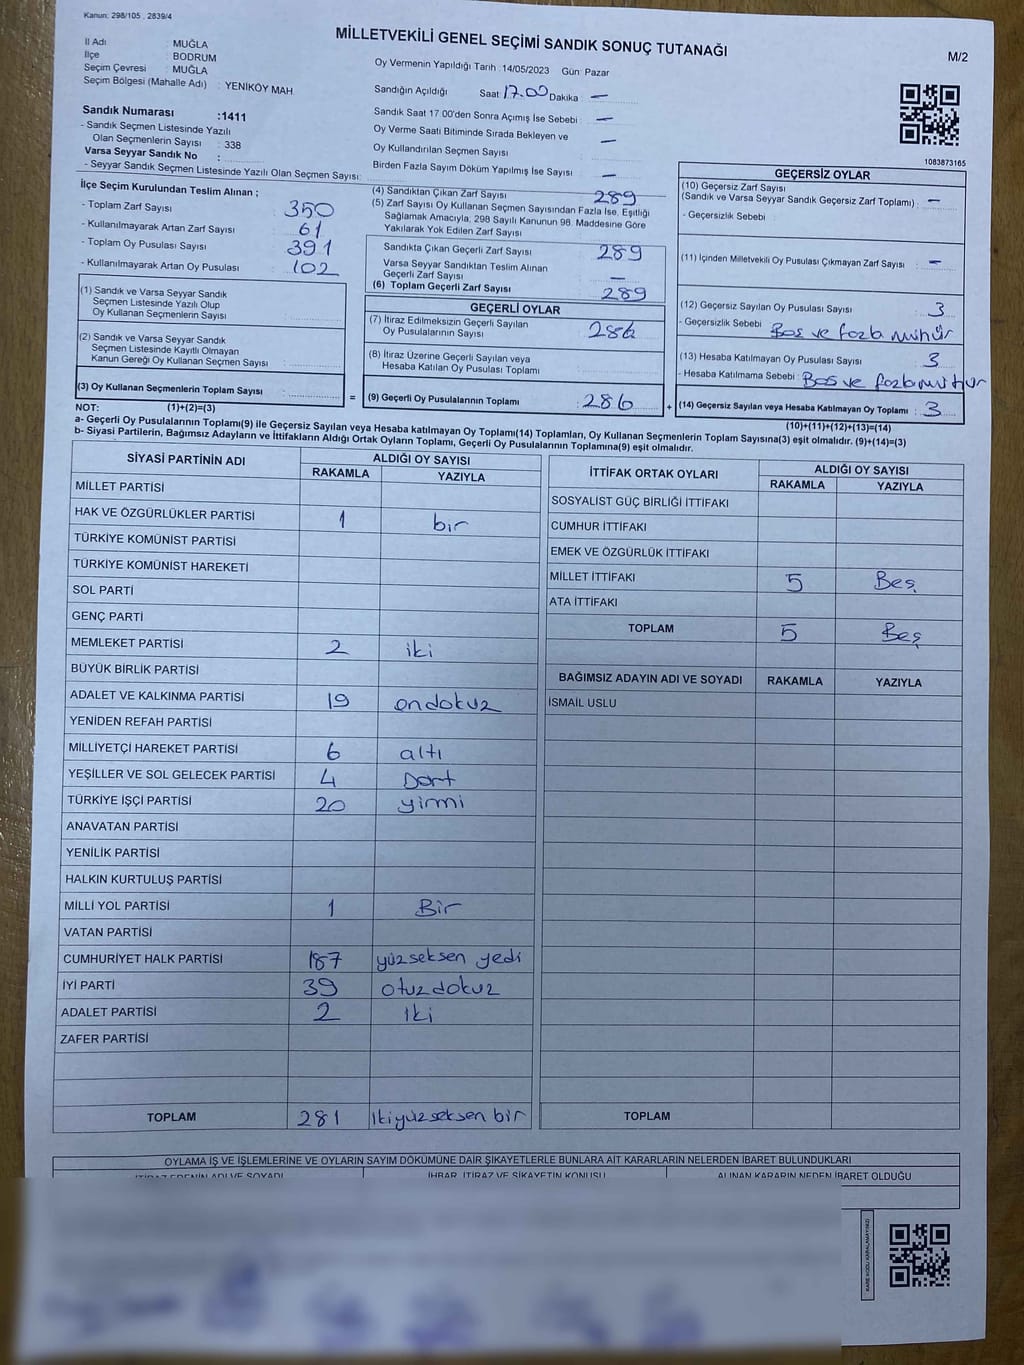 Kanun: 298/105 , 2839/4
MİLLETVEKİLİ GENEL SEÇİMİ SANDIK SONUÇ TUTANAĞI
M/2
İl Adı : MUĞLA
İlçe : BODRUM
Seçim Çevresi : MUĞLA
Seçim Bölgesi (Mahalle Adı) : YENİKÖY MAH
Sandık Numarası :1411
- Sandık Seçmen Listesinde Yazılı
Olan Seçmenlerin Sayısı : 338
Varsa Seyyar Sandık No :
- Seyyar Sandık Seçmen Listesinde Yazılı Olan Seçmen Sayısı:
Oy Vermenin Yapıldığı Tarih :14/05/2023 Gün: Pazar
Sandığın Açıldığı Saat: 17.00 Dakika : —
Sandık Saat 17.00'den Sonra Açımış İse Sebebi : —
Oy Verme Saati Bitiminde Sırada Bekleyen ve
Oy Kullandırılan Seçmen Sayısı : —
Birden Fazla Sayım Döküm Yapılmış İse Sayısı : —
1083873165
İlçe Seçim Kurulundan Teslim Alınan ;
- Toplam Zarf Sayısı : 350
- Kullanılmayarak Artan Zarf Sayısı : 61
- Toplam Oy Pusulası Sayısı : 391
- Kullanılmayarak Artan Oy Pusulası : 102
(1) Sandık ve Varsa Seyyar Sandık
Seçmen Listesinde Yazılı Olup
Oy Kullanan Seçmenlerin Sayısı :
(2) Sandık ve Varsa Seyyar Sandık
Seçmen Listesinde Kayıtlı Olmayan
Kanun Gereği Oy Kullanan Seçmen Sayısı :
(3) Oy Kullanan Seçmenlerin Toplam Sayısı :
(1)+(2)=(3)
(4) Sandıktan Çıkan Zarf Sayısı : 289
(5) Zarf Sayısı Oy Kullanan Seçmen Sayısından Fazla İse, Eşitliği
Sağlamak Amacıyla; 298 Sayılı Kanunun 98. Maddesine Göre
Yakılarak Yok Edilen Zarf Sayısı :
Sandıkta Çıkan Geçerli Zarf Sayısı : 289
Varsa Seyyar Sandıktan Teslim Alınan
Geçerli Zarf Sayısı : —
(6) Toplam Geçerli Zarf Sayısı : 289
GEÇERLİ OYLAR
(7) İtiraz Edilmeksizin Geçerli Sayılan
Oy Pusulalarının Sayısı : 286
(8) İtiraz Üzerine Geçerli Sayılan veya
Hesaba Katılan Oy Pusulası Toplamı :
= (9) Geçerli Oy Pusulalarının Toplamı : 286 +
GEÇERSİZ OYLAR
(10) Geçersiz Zarf Sayısı
(Sandık ve Varsa Seyyar Sandık Geçersiz Zarf Toplamı) : —
- Geçersizlik Sebebi :
(11) İçinden Milletvekili Oy Pusulası Çıkmayan Zarf Sayısı : —
(12) Geçersiz Sayılan Oy Pusulası Sayısı : 3
- Geçersizlik Sebebi : Boş ve fazla mühür
(13) Hesaba Katılmayan Oy Pusulası Sayısı : 3
- Hesaba Katılmama Sebebi : Boş ve fazla mühür
(14) Geçersiz Sayılan veya Hesaba Katılmayan Oy Toplamı : 3
(10)+(11)+(12)+(13)=(14)
NOT:
a- Geçerli Oy Pusulalarının Toplamı(9) ile Geçersiz Sayılan veya Hesaba katılmayan Oy Toplamı(14) Toplamları, Oy Kullanan Seçmenlerin Toplam Sayısına(3) eşit olmalıdır. (9)+(14)=(3)
b- Siyasi Partilerin, Bağımsız Adayların ve İttifakların Aldığı Ortak Oyların Toplamı, Geçerli Oy Pusulalarının Toplamına(9) eşit olmalıdır.
SİYASİ PARTİNİN ADI ALDIĞI OY SAYISI
RAKAMLA YAZIYLA
MİLLET PARTİSİ
HAK VE ÖZGÜRLÜKLER PARTİSİ 1 bir
TÜRKİYE KOMÜNİST PARTİSİ
TÜRKİYE KOMÜNİST HAREKETİ
SOL PARTİ
GENÇ PARTİ
MEMLEKET PARTİSİ 2 iki
BÜYÜK BİRLİK PARTİSİ
ADALET VE KALKINMA PARTİSİ 19 ondokuz
YENİDEN REFAH PARTİSİ
MİLLİYETÇİ HAREKET PARTİSİ 6 altı
YEŞİLLER VE SOL GELECEK PARTİSİ 4 Dört
TÜRKİYE İŞÇİ PARTİSİ 20 yirmi
ANAVATAN PARTİSİ
YENİLİK PARTİSİ
HALKIN KURTULUŞ PARTİSİ
MİLLİ YOL PARTİSİ 1 Bir
VATAN PARTİSİ
CUMHURİYET HALK PARTİSİ 187 yüzseksen yedi
İYİ PARTİ 39 otuzdokuz
ADALET PARTİSİ 2 İki
ZAFER PARTİSİ
TOPLAM 281 İkiyüzseksen bir
İTTİFAK ORTAK OYLARI ALDIĞI OY SAYISI
RAKAMLA YAZIYLA
SOSYALİST GÜÇ BİRLİĞİ İTTİFAKI
CUMHUR İTTİFAKI
EMEK VE ÖZGÜRLÜK İTTİFAKI
MİLLET İTTİFAKI 5 Beş
ATA İTTİFAKI
TOPLAM 5 Beş
BAĞIMSIZ ADAYIN ADI VE SOYADI RAKAMLA YAZIYLA
İSMAİL USLU
TOPLAM
OYLAMA İŞ VE İŞLEMLERİNE VE OYLARIN SAYIM DÖKÜMÜNE DAİR ŞİKAYETLERLE BUNLARA AİT KARARLARIN NELERDEN İBARET BULUNDUKLARI
İTİRAZ EDENİN ADI VE SOYADI İHBAR, İTİRAZ VE ŞİKAYETİN KONUSU ALINAN KARARIN NEDEN İBARET OLDUĞU